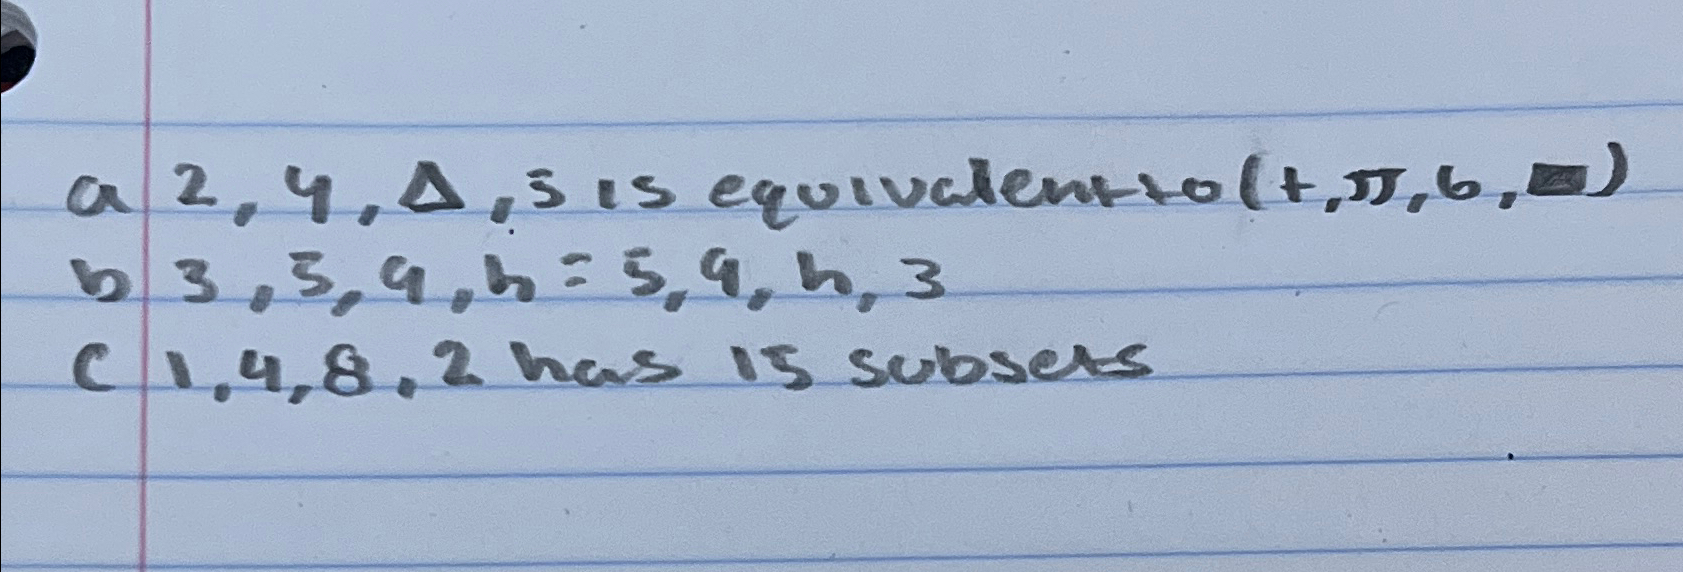 a 2, 4, Δ, 5 is equivalent to (t, π, 6, ▬)
b 3, 5, 9, h = 5, 9, h, 3
C 1, 4, 8, 2 has 15 subsets